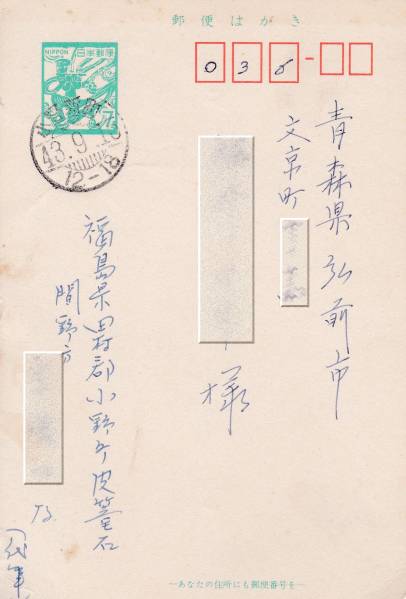 郵便はがき
NIPPON 日本郵便
7
43.9.
12-18
036
青森県弘前市
文京町
様
福島県田村郡小野町皮籠石
間野方
代筆
―あなたの住所にも郵便番号を―